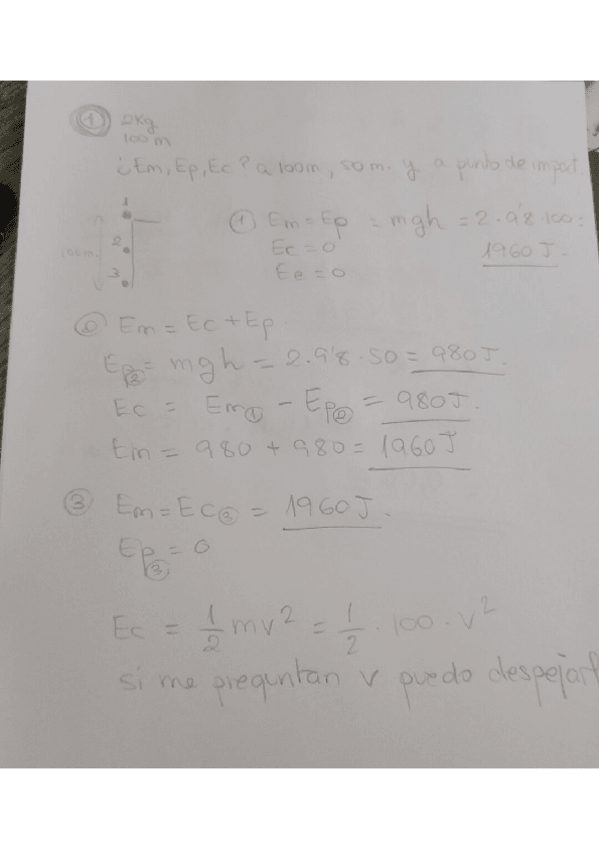 1 2Kg
100m
¿Em, Ep, Ec? a 100m, 50 m. y a punto de impact
1
2
3
100m
① Em = Ep = mgh = 2·9'8·100 =
Ec = 0 1960 J.
Ee = 0
② Em = Ec + Ep
Ep② = mgh = 2·9'8·50 = 980 J.
Ec = Em① - Ep② = 980 J.
Em = 980 + 980 = 1960 J
③ Em = Ec③ = 1960 J.
Ep③ = 0
Ec = 1/2 mv² = 1/2 · 100 · v²
si me preguntan v puedo despejarl